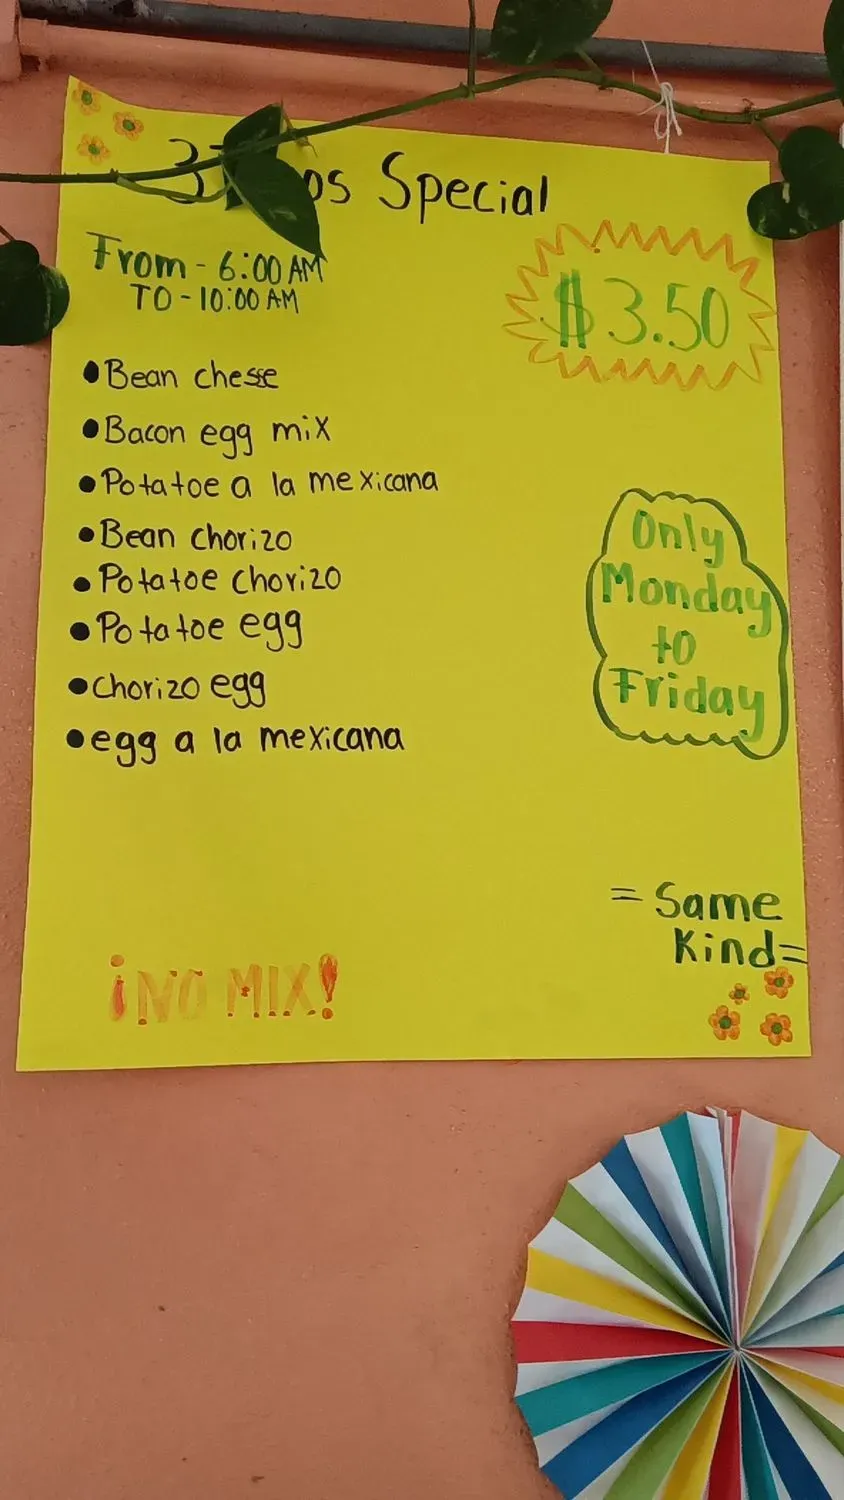 3 Special
From - 6:00 AM
TO - 10:00 AM
$3.50
• Bean chesse
• Bacon egg mix
• Potatoe a la mexicana
• Bean chorizo
• Potatoe chorizo
• Potatoe egg
• chorizo egg
• egg a la mexicana
Only
Monday
to
Friday
= Same
Kind =
¡NO MIX!